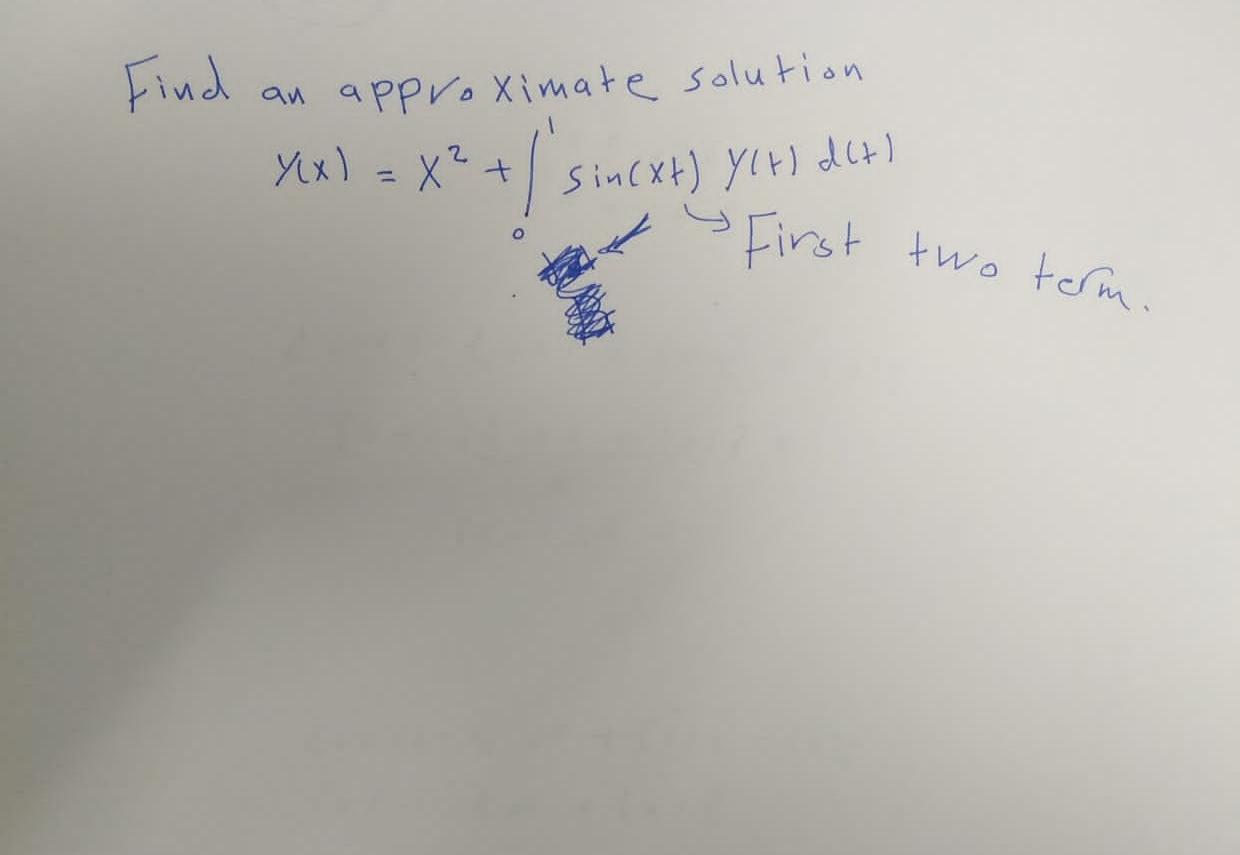 Find an approximate solution
y(x) = x² + ∫₀¹ sin(xt) y(t) d(t)
↳ First two term.